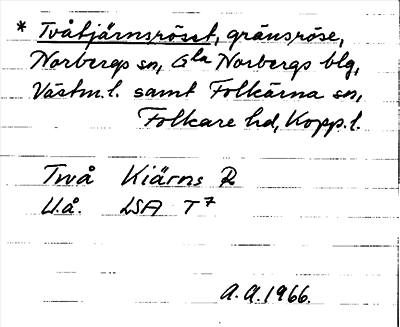 * Tvåtjärnsröset, gränsröse,
Norbergs sn, Gla Norbergs blg,
Västm.l. samt Folkärna sn,
Folkare hd, Kopp.l.
Twå Kiärns R
U.å. LSA T7
A.A.1966.